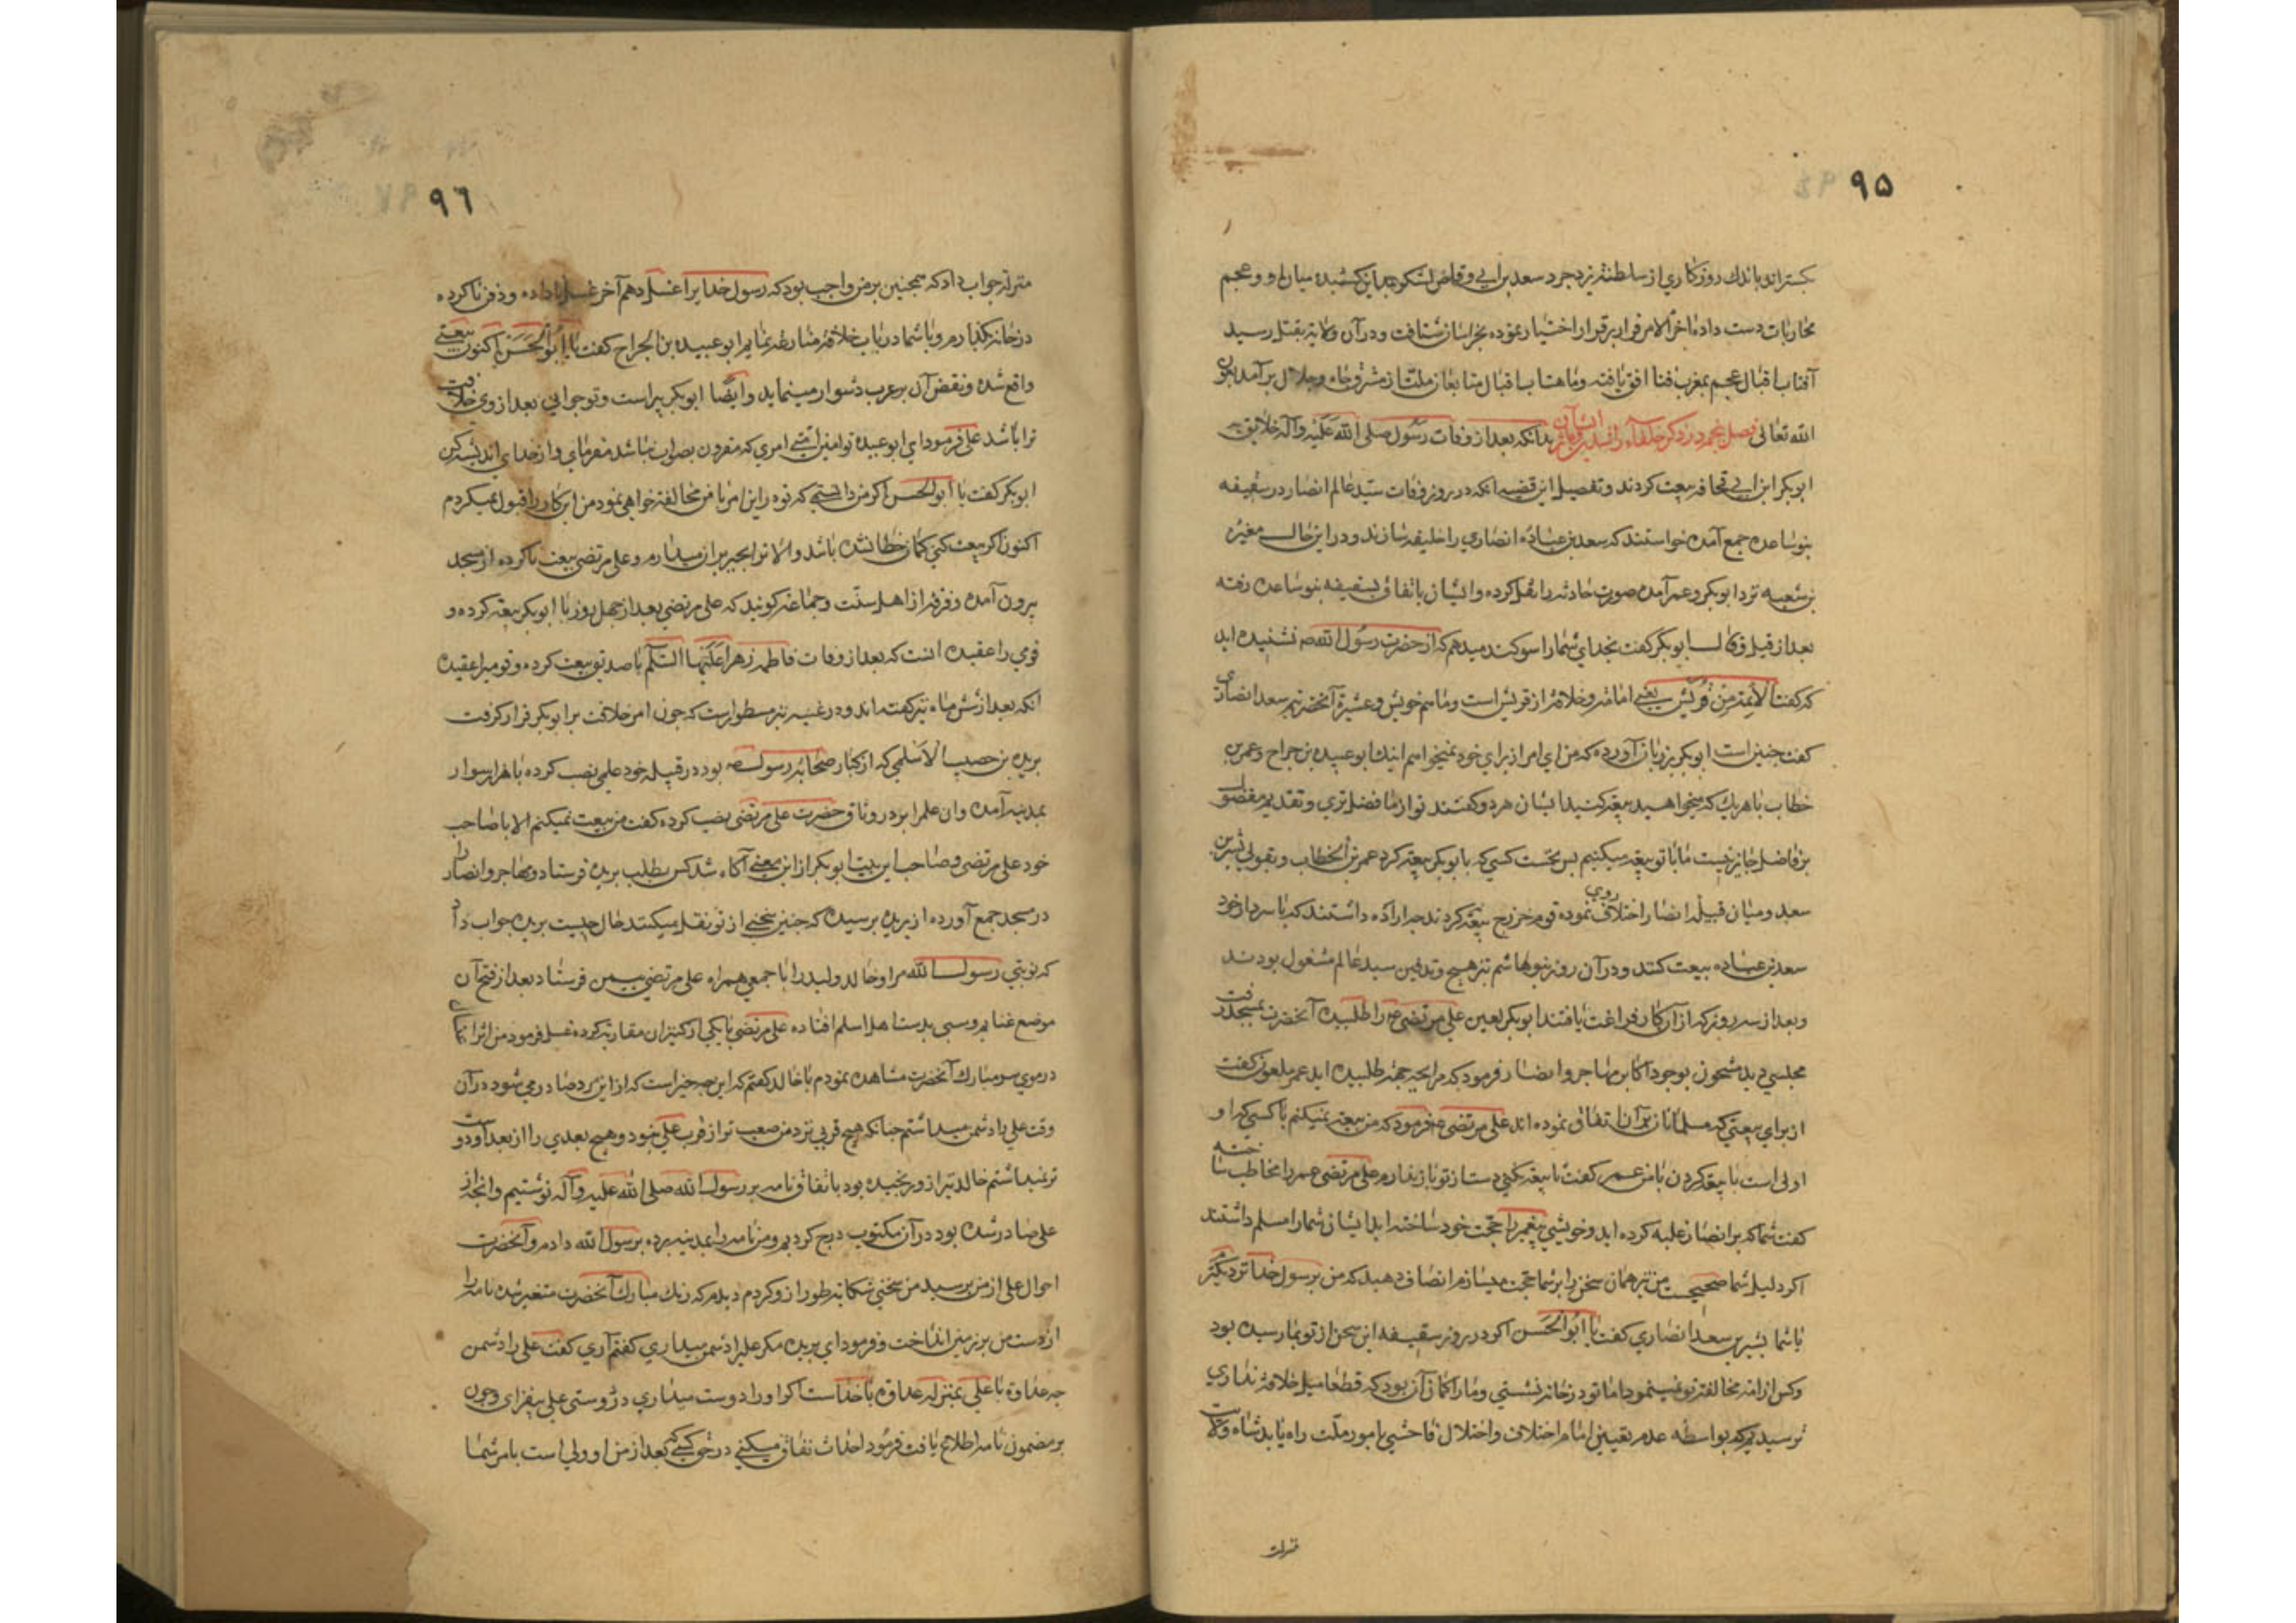 ۹۵
بگسترانید باندك روزكاری از سلطنة یزدجرد سعد بن ابی وقاص لشكر بمداین كشیده میان او و عجم
محاربات دست داده آخر الامر فرار بر قرار اختیار نموده بخراسان شتافت و در آن ولایة بقتل رسید
آفتاب اقبال عجم بمغرب فنا افق یافته و ماهتاب اقبال متابعان ملت از مشرق جاه و جلال برآمد بعون
الله تعالی فصل پنجم در ذكر خلفاء راشدین بدانكه بعد از وفات رسول صلی الله علیه وآله خلایق
ابوبكر ابن ابی قحافه بیعت كردند و تفصیل این قضیه آنكه در روز وفات سید عالم انصار در سقیفه
بنو ساعده جمع آمده خواستند كه سعد بن عباده انصاری را خلیفه سازند و در این حال مغیره
بن شعبه نزد ابوبكر و عمر آمده صورت حادثه را نقل كرده و ایشان باتفاق بسقیفه بنو ساعده رفته
بعد از قیل و قال ابوبكر گفت بخدای شما را سوكند میدهم كه از حضرت رسول الله ص نشنیده اید
كه گفت الائمة من قریش یعنی امامة و خلافة از قریش است و ما هم خویش و عشیرة آنحضرتیم سعد انصاری
گفت چنین است ابوبكر بر زبان آورده كه من ای امر از برای خود نمیخواهم اینك ابو عبیده بن جراح و عمر بن
خطاب با هریك كه میخواهید بیعة كنید ایشان هر دو كفتند تو از ما فاضل تری و تقدیم مفضول
بر فاضل جایز نیست ما با تو بیعة میكنیم پس نخست كسی كه با ابوبكر بیعة كرد عمر بن الخطاب و بقولی بشر بن
سعد و میان قبیله انصار اختلاف روی نموده قوم خزرج بیعة كردند چه اراده داشتند كه با سردار خود
سعد بن عباده بیعت كنند و در آن روز بنوهاشم بتجهیز و تدفین سید عالم مشغول بودند
و بعد از سه روز كه از آن كار فراغت یافتند ابوبكر لعین علی مرتضی ع را طلبیده آنحضرت بمسجد رفت
مجلسی دید مشحون بوجود اكابر مهاجر و انصار فرمود كه مرا بچه جهة طلبیده اید عمر ملعون كفت
از برای بیعتی كه مسلمانان بر آن اتفاق نموده اند علی مرتضی ع فرمود كه من بیعة نمیكنم با كسی كه او
اولی است با بیعة كردن با من عمر گفت تا بیعة نكنی دست از تو باز ندارم علی مرتضی عمر را مخاطب ساخته
كفت شما كه بر انصار غلبه كرده اید و خویشی پیغمبر را حجت خود ساخته اید ایشان شما را مسلم داشتند
اكر دلیل شما صحیحست من نیز همان سخن را بر شما حجت میسازم انصاف دهید كه من برسول خدا نزدیكترم
یا شما بشیر بن سعد انصاری كفت یا ابوالحسن اكر در روز سقیفه این سخن از تو بما رسیده بود
وكس از امة مخالفة تو نمینمود اما تو در خانه نشستی و ما را كمان آن بود كه قطعا میل خلافة نداری
ترسیدیم كه بواسطه عدم تعیین امام اختلاف و اختلال فاحشی بامور ملت راه یابد شاه ولایت
منزلت
۹٦
منزلة جواب داد كه همچنین بر من واجب بود كه رسول خدایرا غسل دهم آخر غسل نا داده و دفن ناكرده
در خانه بگذارم و با شما در باب خلافة منازعه نمایم ابو عبیده بن الجراح كفت یا ابوالحسن اكنون بیعتی
واقع شده و نقض آن بر عرب دشوار مینماید و ایضا ابوبكر پیر است و تو جوانی بعد از وی خلافت
ترا باشد علی فرمود ای ابو عبیده تو امین امتی امری كه مقرون بصواب نباشد مفرمای و از خدای اندیشه كن
ابوبكر كفت یا ابوالحسن اكر من دانستمی كه تو در این امر با من مخالفة خواهی نمود من این كار را قبول نمیكردم
اكنون اكر بیعت كنی كمان خطا نشده باشد و الا ترا بجبر بر آن میدارم و علی مرتضی بیعت ناكرده از مسجد
بیرون آمده و فرقه از اهل سنت و جماعة كویند كه علی مرتضی بعد از چهل روز با ابوبكر بیعة كرده و
قومی را عقیده انست كه بعد از وفات فاطمه زهرا علیها السلام با صدیق بیعت كرده و قومیرا عقیده
انكه بعد از شش ماه نیز كفته اند و در غنیه نیز مسطور است كه چون امر خلافت بر ابوبكر قرار كرفت
بریده بن حصیب الاسلمی كه از كبار صحابه رسول ص بود در قبیله خود علمی نصب كرده با هزار سوار
بمدینه آمده وان علم را بر در وثاق حضرت علی مرتضی نصب كرده كفت من بیعت نمیكنم الا با صاحب
خود علی مرتضی و صاحب این بیت ابوبكر از این معنی آكاه شد كس بطلب بریده فرستاد و مهاجر و انصار را
در مسجد جمع آورده از بریده پرسیده كه چنین سخنی از تو نقل میكنند حال چیست بریده جواب داد
كه نوبتی رسول الله مرا و خالد ولید را با جمعی همراه علی مرتضی بیمن فرستاد بعد از فتح آن
موضع غنایم و سبی بدست اهل اسلم افتاده علی مرتضی با یكی از كنیزان مقاربة كرده غسل فرمود من اثر آب
در موی سر مبارك آنحضرت مشاهده نمودم با خالد كفتم كه این چه چیز است كه از این مرد صادر می شود در آن
وقت علی را دشمن میداشتم چنانكه هیچ قربی نزد من صعب تر از قرب علی نبود و هیچ بعدی را از بعد او دوست
تر نمیداشتم خالد نیز از و رنجیده بود باتفاق نامه بر رسول الله صلی الله علیه وآله نوشتیم وانچه از
علی صادر شده بود در آن مكتوب درج كردیم و من نامه را بمدینه برده برسول الله دادم و آنحضرت
احوال علی از من پرسید من سخنی شكایة طور از و كردم دیدم كه رنك مبارك آنحضرت متغیر شده نامه را
از دست من بر زمین انداخت و فرمود ای بریده مكر علیرا دشمن میداری كفتم آری كفت علی را دشمن
چه عداوة با علی بمنزله عداوة با خداست اكر او را دوست میداری در دوستی علی بیفزای و چون
بر مضمون نامه اطلاع یافت فرمود احداث نفاق میكنی در حق كسی كه بعد از من او ولی است بامر شما